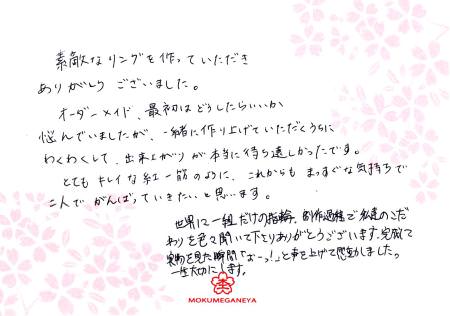 素敵なリングを作っていただき
ありがとうございました。
オーダーメイド、最初はどうしたらいいか
悩んでいましたが、一緒に作り上げていただくうちに
わくわくして、出来上がりが本当に待ち遠しかったです。
とてもキレイな紅一筋のように、これからもまっすぐな気持ちで
二人でがんばっていきたいと思います。
世界に一組だけの指輪、創作過程で私達のこだ
わりを色々聞いて下さりありがとうございます。完成して
実物を見た瞬間「おーっ!」と声を上げて感動しました。
一生大切にします。
MOKUMEGANEYA